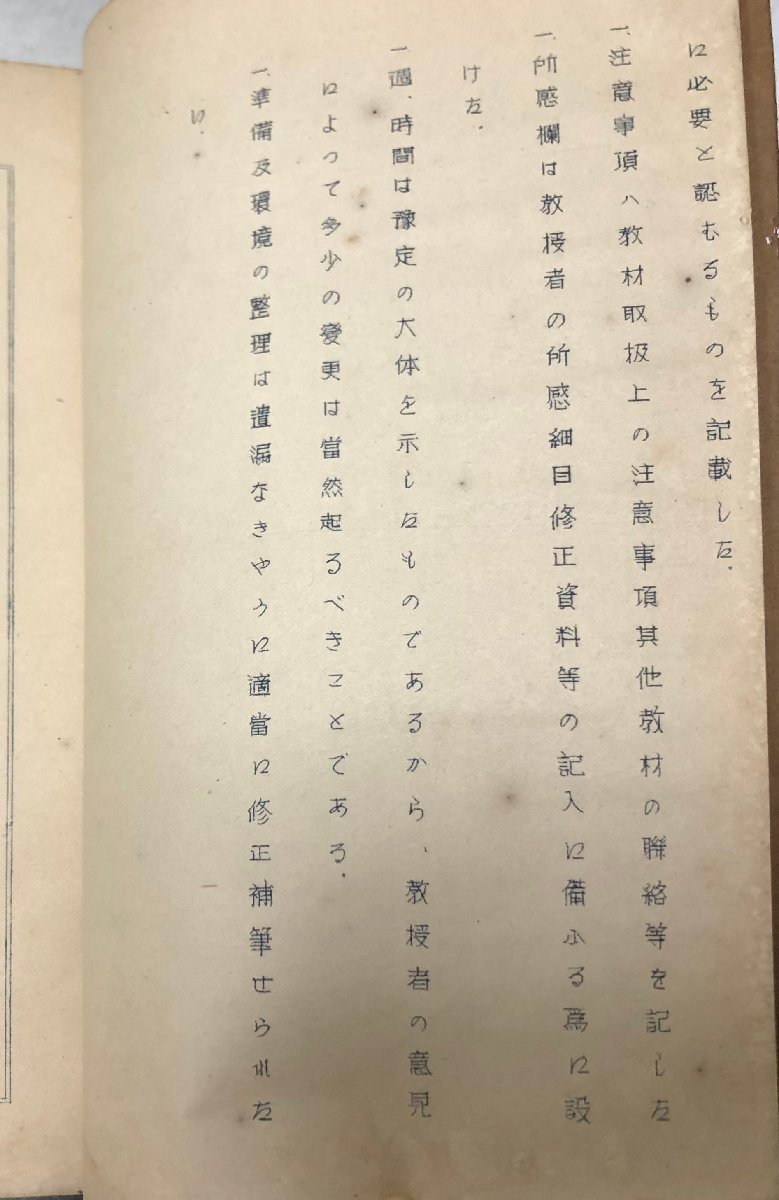 に必要と認むるものを記載した.
一、注意事項ハ教材取扱上の注意事項其他教材の聯絡等を記した
一、所感欄は教授者の所感細目修正資料等の記入に備ふる爲に設
けた.
一、週、時間は豫定の大体を示したものであるから、教授者の意見
によって多少の変更は當然起るべきことである.
一、準備及環境の整理は遺漏なきやうに適當に修正補筆せられた
い.